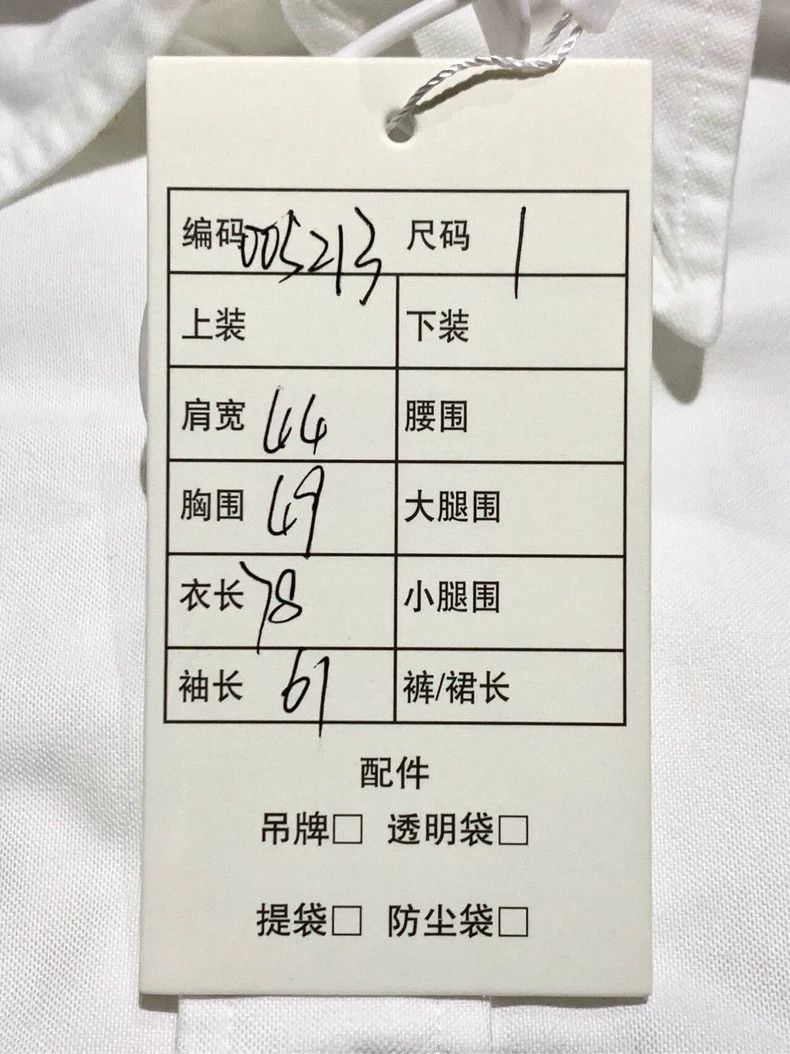 编码 005213 尺码 1
上装 下装
肩宽 44 腰围
胸围 49 大腿围
衣长 78 小腿围
袖长 61 裤/裙长
配件
吊牌□ 透明袋□
提袋□ 防尘袋□